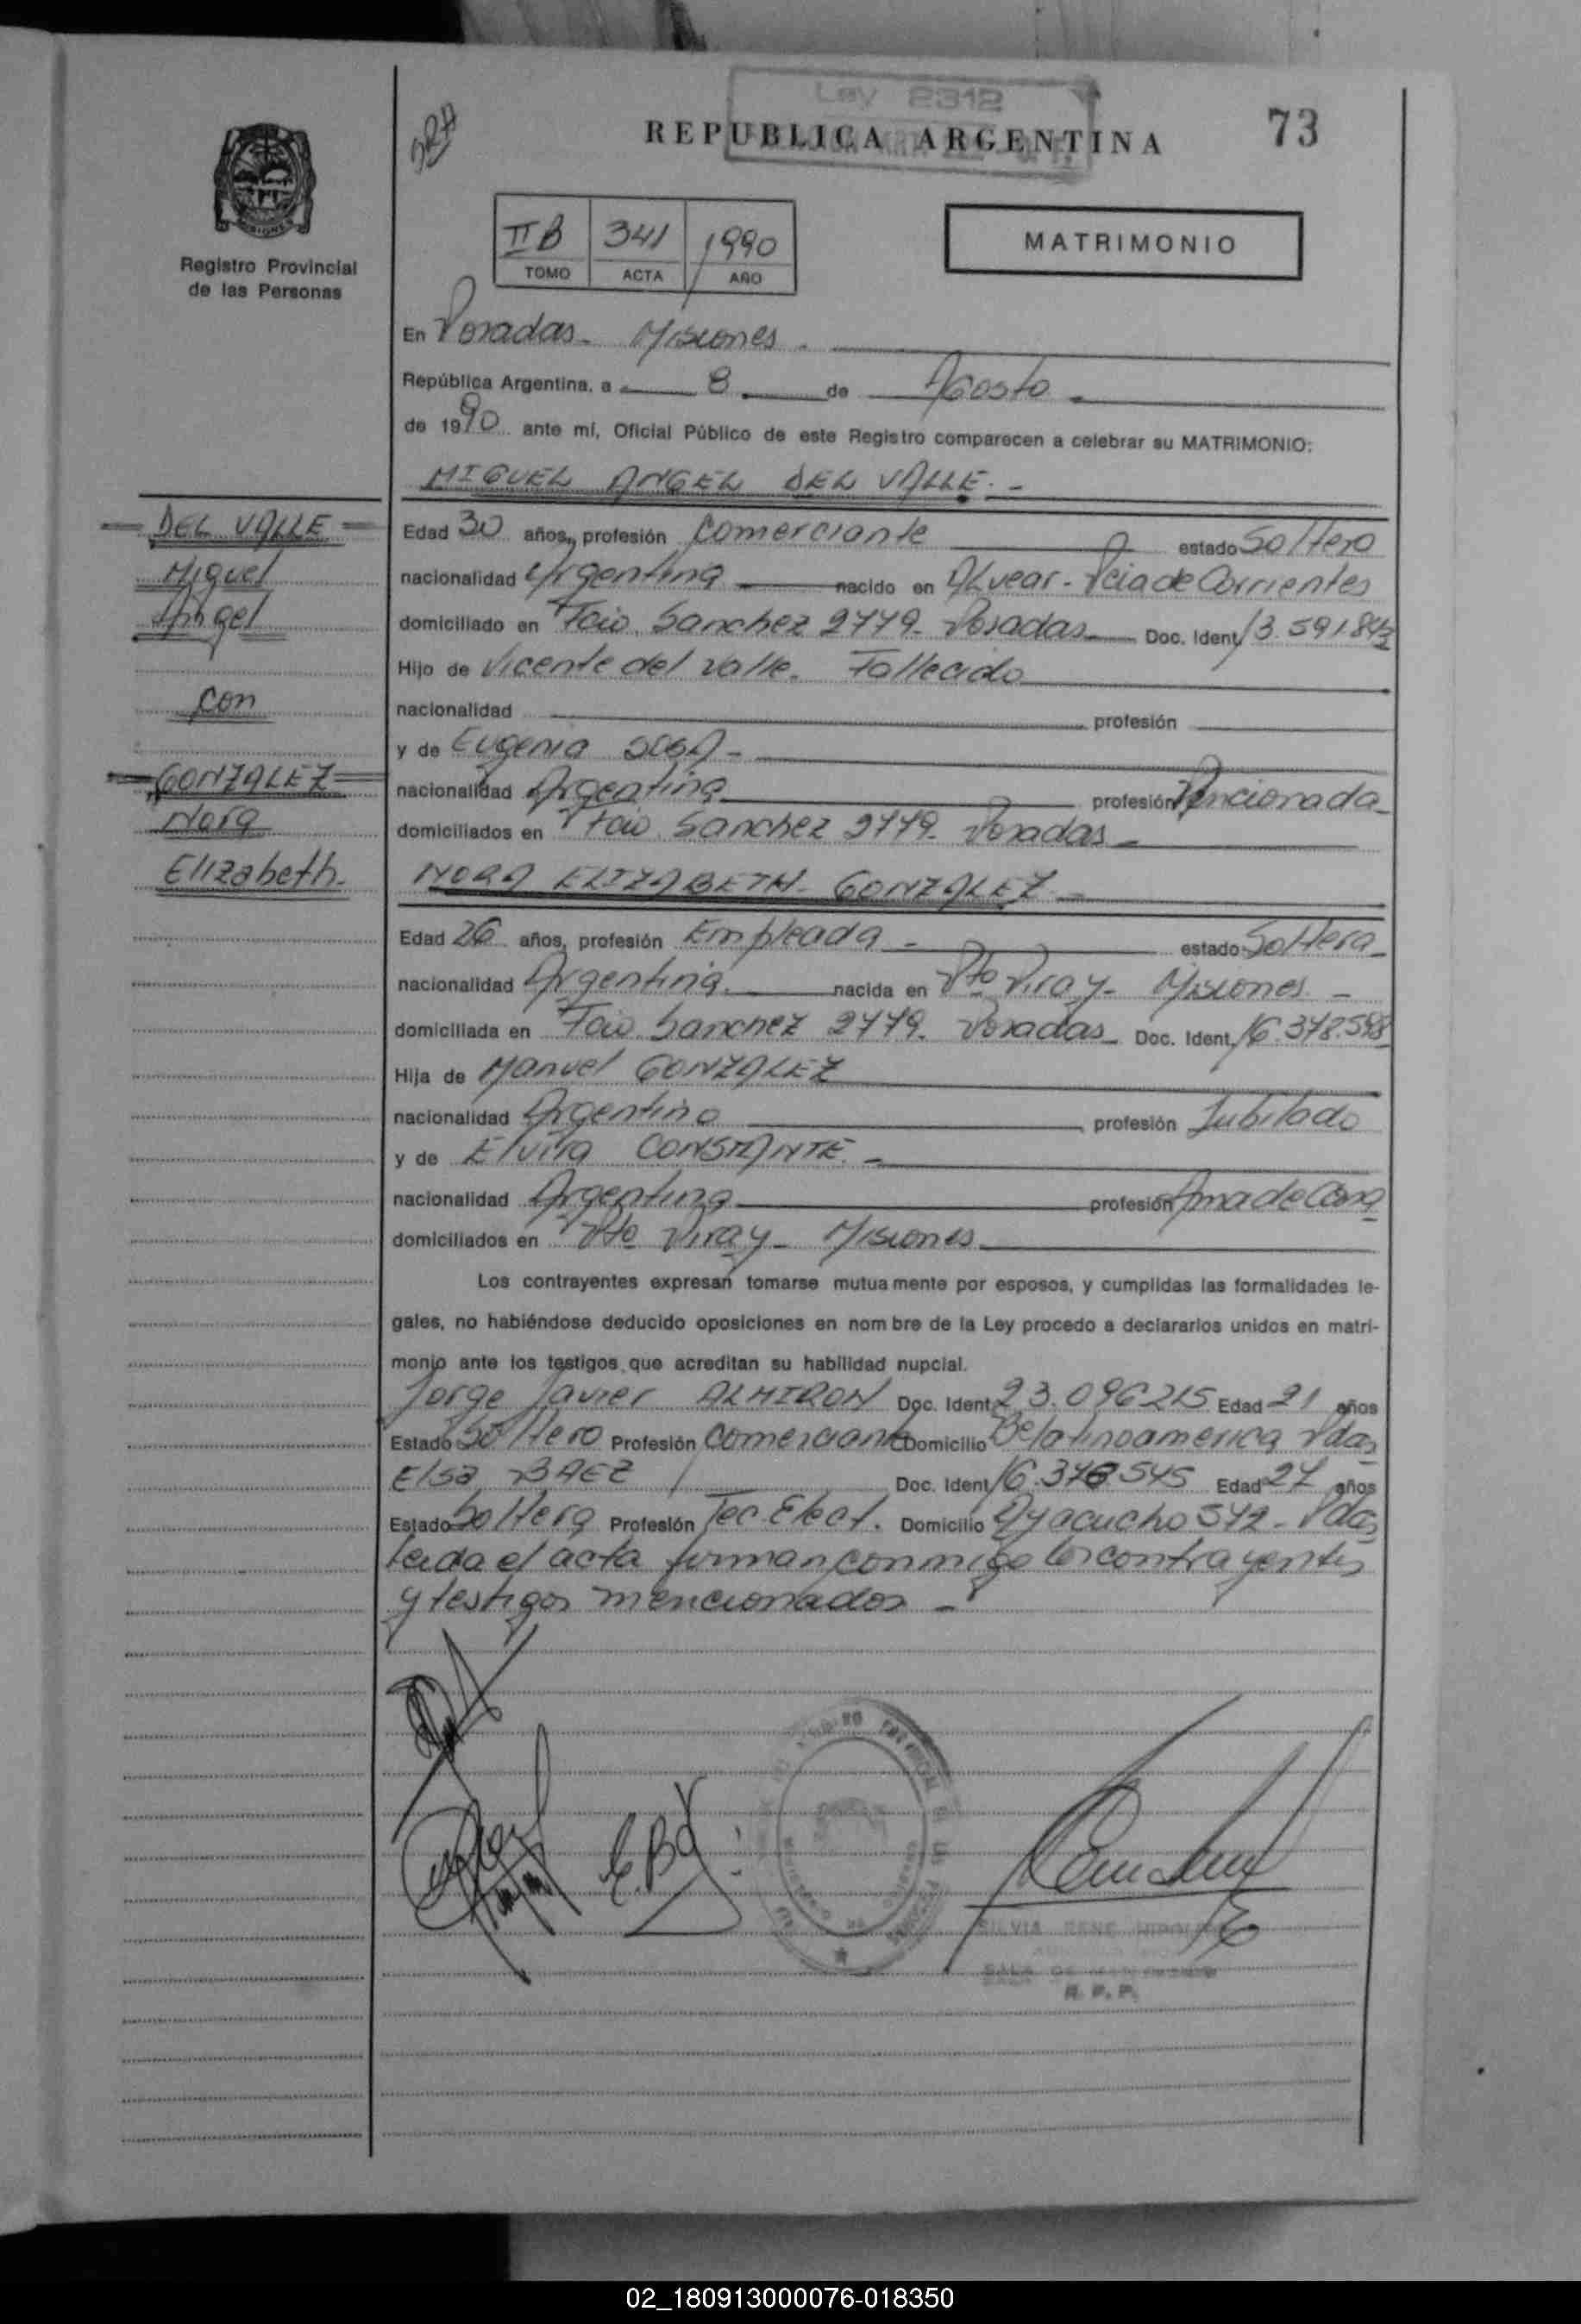 Ley 2312
REPUBLICA ARGENTINA
73
MISIONES
Registro Provincial
de las Personas
II B 341 1990
TOMO ACTA AÑO
MATRIMONIO
En Posadas - Misiones.
República Argentina, a 8 de Agosto
de 1990 ante mí, Oficial Público de este Registro comparecen a celebrar su MATRIMONIO:
MIGUEL ANGEL DEL VALLE.-
DEL VALLE
Miguel
Angel
con
GONZALEZ
Nora
Elizabeth.
Edad 30 años, profesión Comerciante estado Soltero
nacionalidad Argentina nacido en Alvear - Pcia de Corrientes
domiciliado en Fcio. Sanchez 2779 - Posadas Doc. Ident. 13.591.843
Hijo de Vicente del Valle. Fallecido
nacionalidad profesión
y de Eugenia SOSA -
nacionalidad Argentina profesión Pencionada
domiciliados en Fcio. Sanchez 2779 - Posadas -
NORA ELIZABETH GONZALEZ. -
Edad 26 años, profesión Empleada - estado Soltera
nacionalidad Argentina. nacida en Pto Piray - Misiones. -
domiciliada en Fcio. Sanchez 2779. Posadas Doc. Ident. 16.378.548
Hija de Manuel GONZALEZ
nacionalidad Argentino profesión Jubilado
y de Elvira CONSTANTE. -
nacionalidad Argentina profesión Ama de Casa
domiciliados en Pto Piray - Misiones
Los contrayentes expresan tomarse mutuamente por esposos, y cumplidas las formalidades le-
gales, no habiéndose deducido oposiciones en nombre de la Ley procedo a declararlos unidos en matri-
monio ante los testigos que acreditan su habilidad nupcial.
Jorge Javier ALMIRON Doc. Ident. 23.096215 Edad 21 años
Estado Soltero Profesión Comerciante Domicilio Bº latinoamerica Pdas
Elsa BAEZ Doc. Ident. 16.378.545 Edad 27 años
Estado Soltera Profesión Tec. Elect. Domicilio Ayacucho 572 - Pdas
Leida el acta firman conmigo los contrayentes
y testigos mencionados -
SILVIA RENE
R. P. P.
02_180913000076-018350